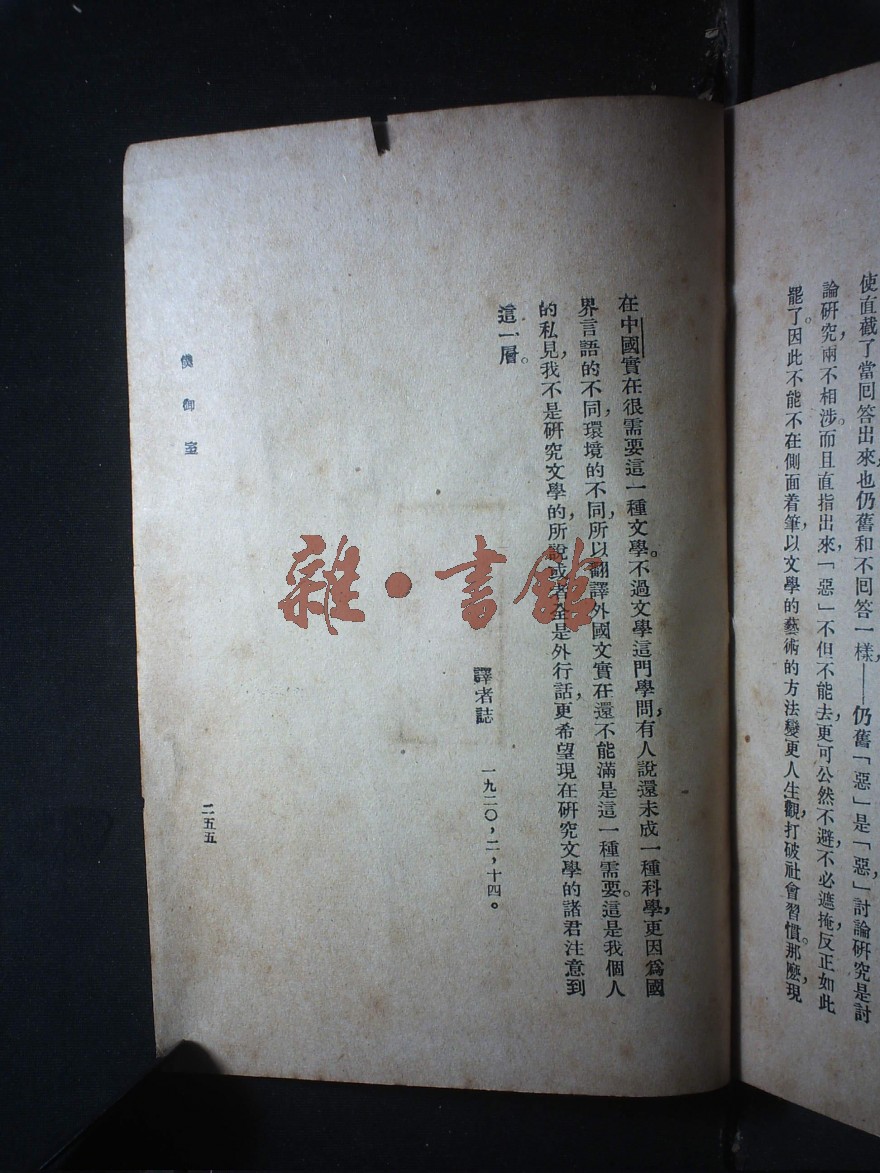 使直截了當回答出來，也仍舊和不回答一樣——仍舊「惡」是「惡」，討論研究是討
論研究，兩不相涉。而且直指出來，「惡」不但不能去，更可公然不避，不必遮掩，反正如此
罷了。因此不能不在側面着筆，以文學的藝術的方法變更人生觀，打破社會習慣。那麽，現
在中國實在很需要這一種文學。不過文學這門學問，有人說還未成一種科學，更因爲國
界言語的不同，環境的不同，所以翻譯外國文實在還不能滿足這一種需要。這是我個人
的私見，我不是研究文學的，所說或者全是外行話，更希望現在研究文學的諸君注意到
這一層。
譯者誌 一九二〇，二，十四。
僕御室
二五五
雜·書館